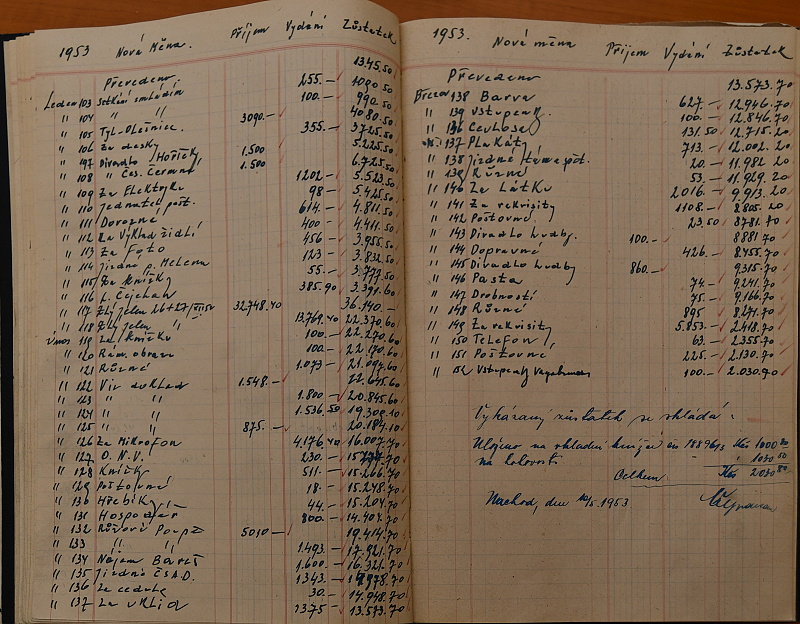 1953 Nová Měna. Příjem Vydání Zůstatek
Převedeno. 1345.50
Leden 103 Setkání smládím 255.— 1090.50
" 104 " " 100.— 990.50
" 105 Tyl-Olešnice. 3090.— 4080.50
" 106 Za desky 355.— 3725.50
" 107 Divadlo Hořičky 1.500 5.225.50
" 108 " Čes. Čermná 1.500 6.725.50
" 109 Za Elektriku 1202.— 5.523.50
" 110 Jednatel, pošt. 98.— 5.425.50
" 111 Dorozné 614.— 4.811.50
" 112 Za Výklad židlí 400.— 4.411.50
" 113 Za Foto 456 3.955.50
" 114 Jízdné Helena 123 3.832.50
" 115 Za Knížky 55.— 3.777.50
" 116 L. Čejchan 385.90 3.391.60
" 117 32.748.40 36.140.—
" 118 13.769.40 22.370.60
Únor 119 Za Knížku 100.— 22.270.60
" 120 Rám. obrazu 100.— 22.170.60
" 121 Různé 1.073.— 21.097.60
" 122 doklad 1.548.— 22.645.60
" 123 " " 1.800.— 20.845.60
" 124 " " 1.536.50 19.309.10
" 125 " " 875.— 20.184.10
" 126 Za Mikrofon 4.176.40 16.007.70
" 127 O.N.V. 230.— 15.777.70
" 128 Knížky 511.— 15.266.70
" 129 Poštovné 18.— 15.248.70
" 130 Hřebíky 44.— 15.204.70
" 131 Hospodář 800.— 14.404.70
" 132 Růžový 5010.— 19.414.70
" 133 " " 1.493.— 17.921.70
" 134 Nájem Bareš 1.600.— 16.321.70
" 135 Jízdné ČSAD. 1343.— 14.978.70
" 136 Za cedule 30.— 14.948.70
" 137 Za úklid 1375 13.573.70
1953. Nová měna Příjem Vydání Zůstatek
Převedeno 13.573.70
Březen 138 Barva 627.— 12.946.70
" 139 Vstupenk. 100.— 12.846.70
" 136 131.50 12.715.20
" 137 Plakáty 713.— 12.002.20
" 138 Jízdné 20.— 11.982.20
" 139 Různé 53.— 11.929.20
" 140 Za Látku 2016.— 9.913.20
" 141 Za rekvisity 1108.— 8.805.20
" 142 Poštovné 23.50 8781.70
" 143 Divadlo hudby. 100.— 8881.70
" 144 Dopravné 426.— 8.455.70
" 145 Divadlo hudby 860.— 9315.70
" 146 Pasta 74.— 9.241.70
" 147 Drobností 75.— 9.166.70
" 148 Různé 895 8.271.70
" 149 Za rekvisity 5.853.— 2.418.70
" 150 Telefon 63.— 2.355.70
" 151 Poštovné 225.— 2.130.70
" 152 Vstupenky 100.— 2.030.70
Vykázaný zůstatek se skládá:
Uloženo na vkladní knížce čís 188961/3 Kčs 1000
na hotovosti
Celkem Kčs
Náchod, dne 1953